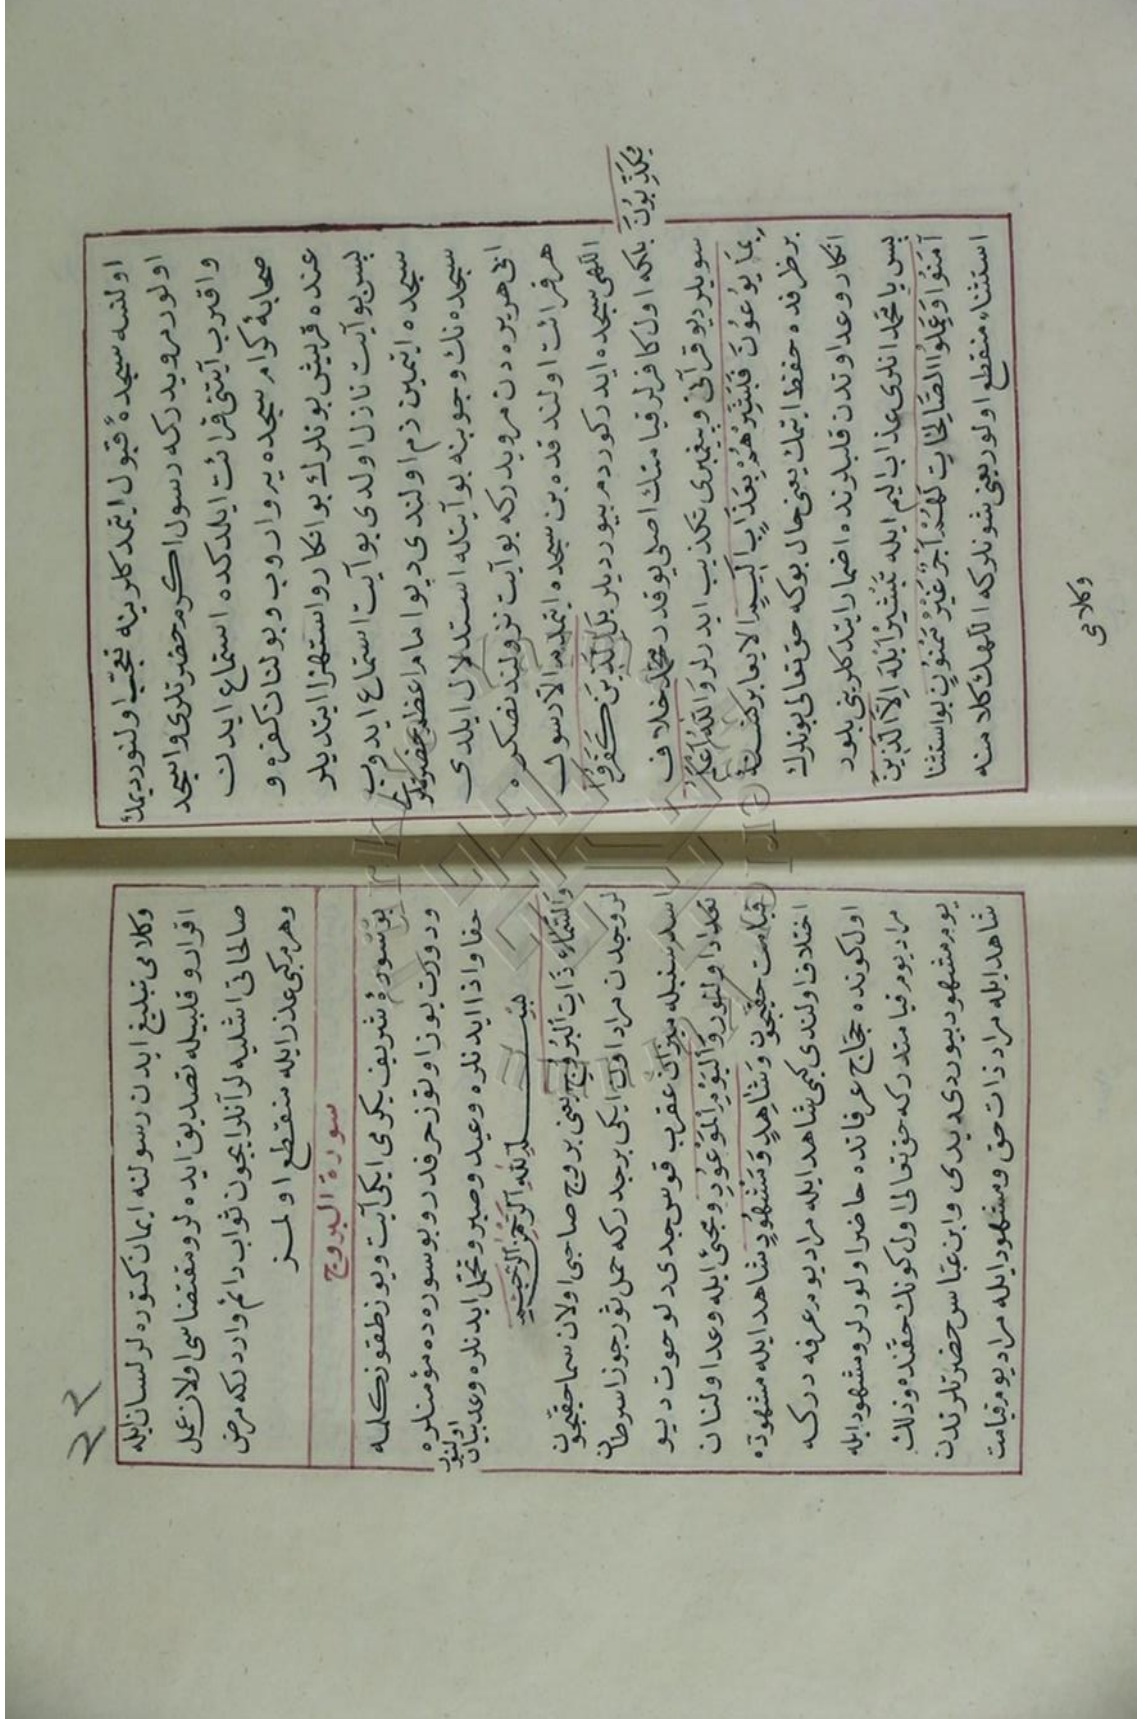 اولنسه سجده‌ٔ قبول ايتمدكلرينه تعجب اولنور ديملٔ
اولور مرويدركه رسول اكرم حضرتلرى واسجد
واقترب آيتنى قرائت ايلدكده استماع ايدن
صحابهٔ كرام سجده‌يه واروب وبولنان كفره و
عنده قريش بونلرك بو انكار واستهزا ايتديلر
پس بو آيت نازل اولدى بو آيت استماع ايدوب
سجده ايتمين ذم اولندى ديو امام اعظم حضرتلرى
سجده‌نك وجوبنه بو آيتله استدلال ايلدى
ابى هريره‌دن مرويدركه بو آيت نزولندنصكره
هر قرائت اولندقده بن سجده ايتمدم الا رسول
اللهى سجده ايدر كوردم بيورديلر بَلِ الَّذِينَ كَفَرُوا يُكَذِّبُونَ
بلكه اول كافرلر قيامتك اصلى يوقدر محمد خلاف
سويلر ديو قرآنى وپيغمبرى تكذيب ايدرلر وَاللّٰهُ اَعْلَمُ
بِمَا يُوعُونَ فَبَشِّرْهُمْ بِعَذَابٍ اَلِيمٍ الايعا بر كمسنه
بر ظرفده حفظ ايتمك يعنى حال بوكه حق تعالى بونلرك
انكار وعداوتدن قلبلرنده اضمار ايتدكلرينى بلور
پس يا محمد انلرى عذاب اليم ايله تبشير ايله اِلَّا الَّذِينَ
آمَنُوا وَعَمِلُوا الصَّالِحَاتِ لَهُمْ اَجْرٌ غَيْرُ مَمْنُونٍ بو استثنا
استثناء منقطع اولور يعنى شونلركه اللهك كلامنه
وكلامى
٢٢
وكلامى تبليغ ايدن رسولنه ايمان كتوره‌لر لسان ايله
اقرار وقلبيله تصديق ايده‌لر ومقتضاسى اولان عمل
صالحاتى اشليه‌لر آنلر ايچون ثواب دائم واردركه مرض
وهرم كبى عذر ايله منقطع اولمز
سورة البروج
بو سورهٔ شريف يكرمى ايكى آيت ويوز طقوز كلمه
ودرت يوز اوتوز حرفدر وبو سوره‌ده مؤمنلره
جفا واذا ايدنلره وعيد وصبر وتحمل ايدنلره وعد بيان اولنور
بسم الله الرحمن الرحيم
وَالسَّمَاءِ ذَاتِ الْبُرُوجِ يعنى بروج صاحبى اولان سما حقيچون
بروجدن مراد اون ايكى برجدركه حمل ثور جوزا سرطان
اسد سنبله ميزان عقرب قوس جدى دلو حوت ديو
تعداد اولنور وَالْيَوْمِ الْمَوْعُودِ ومجئ ايله وعد اولنان
قيامت حقيچون وَشَاهِدٍ وَمَشْهُودٍ شاهد ايله مشهودده
اختلاف اولندى كمى شاهد ايله مراد يوم عرفه‌دركه
اول كونده حجاج عرفاتده حاضر اولورلر ومشهود ايله
مراد يوم قيامتدركه حق تعالى اول كونك حقنده وذلك
يوم مشهود بيوردى ديدى وابن عباس حضرتلرندن
شاهد ايله مراد ذات حق ومشهود ايله مراد يوم قيامت